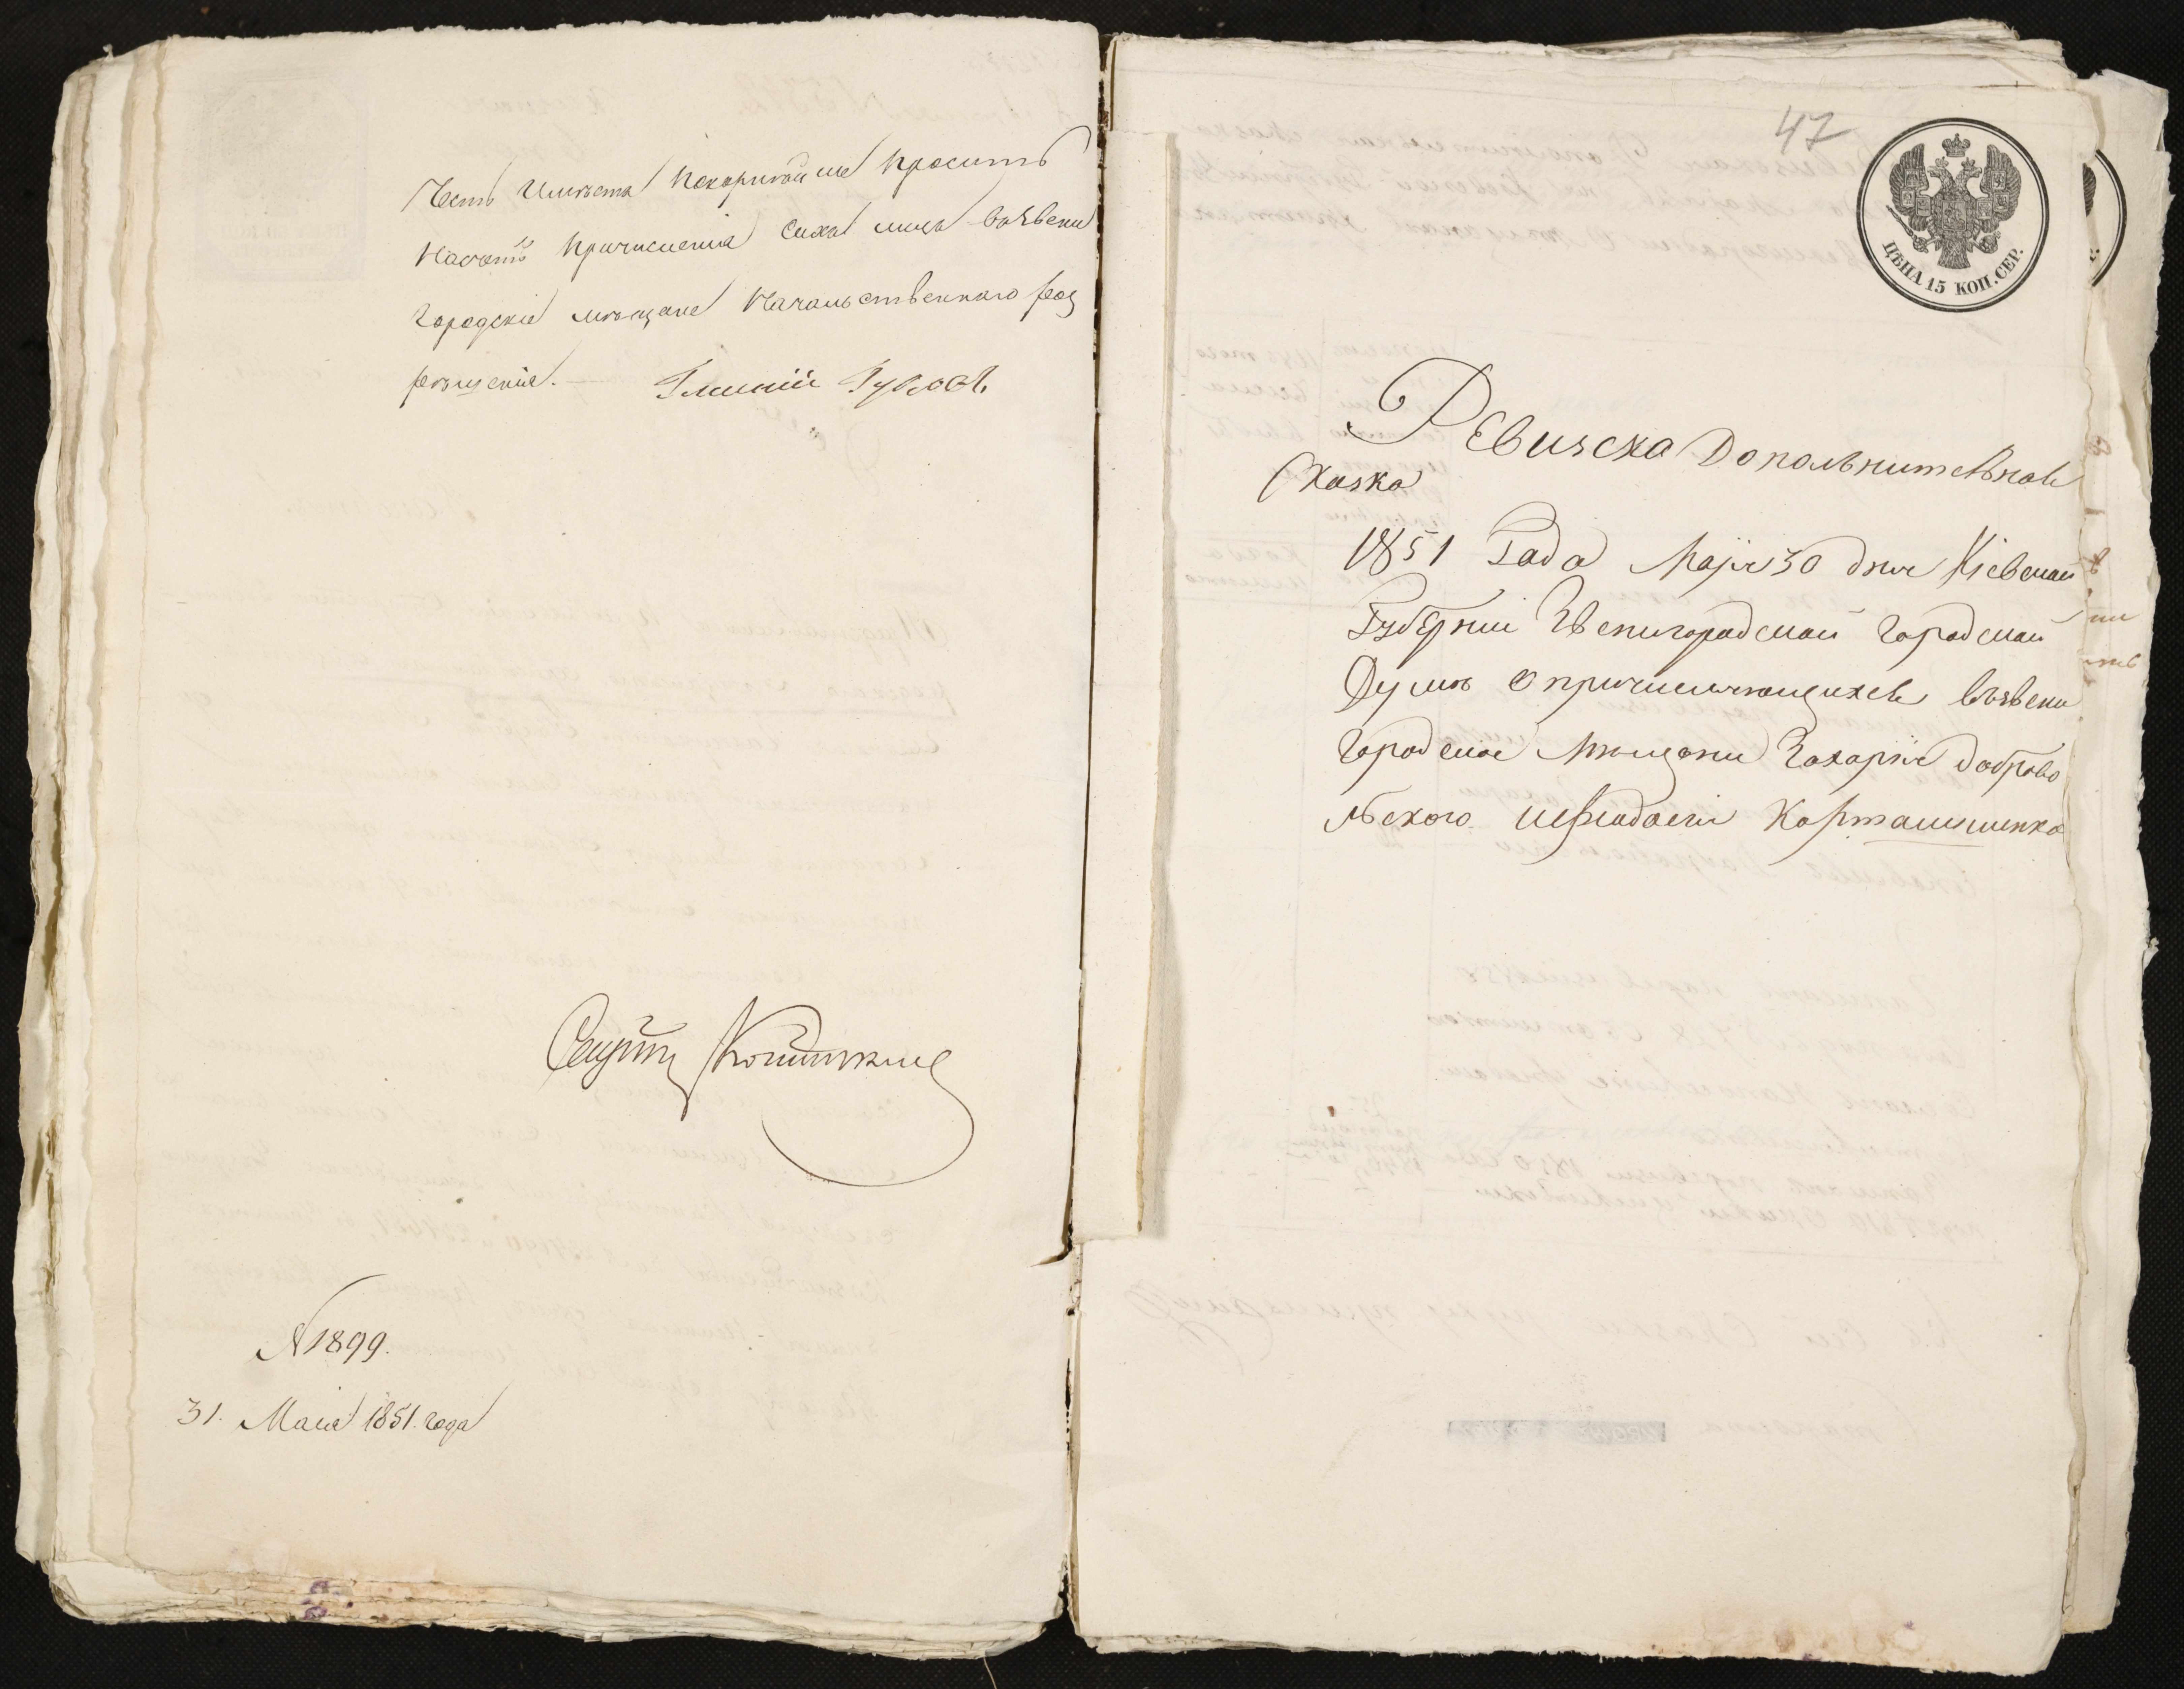 Честь имѣетъ покорнѣйше просить
насчетъ причисленія сихъ лицъ въ Звени
городскіе мѣщане Начальственнаго раз
рѣшенія. — Гласный
№ 1899.
31. Маія 1851. года
47
ЦѢНА 15 КОП. СЕР.
Ревизска Допольнительная
Сказка
1851 Года Маія 30 дня Кіевской
Губернии Звенигородской Городской
Думѣ о причисляющихся въ Звени
городское мѣщани Захарія Доброво
льского и Карташишенко